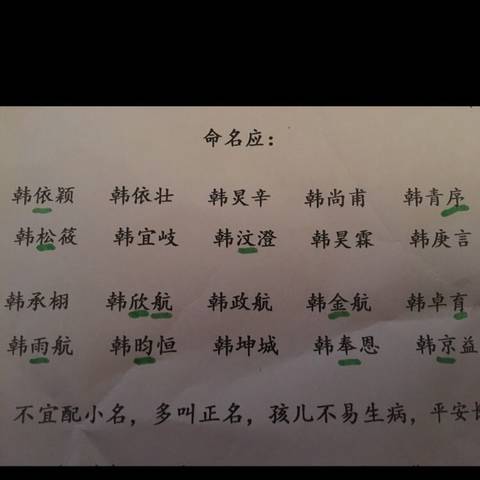 命名应：
韩依颖 韩依壮 韩炅辛 韩尚甫 韩青序
韩松筱 韩宜岐 韩汶澄 韩昊霖 韩庚言
韩承栩 韩欣航 韩政航 韩金航 韩卓育
韩雨航 韩昀恒 韩坤城 韩奉恩 韩京益
不宜配小名，多叫正名，孩儿不易生病，平安